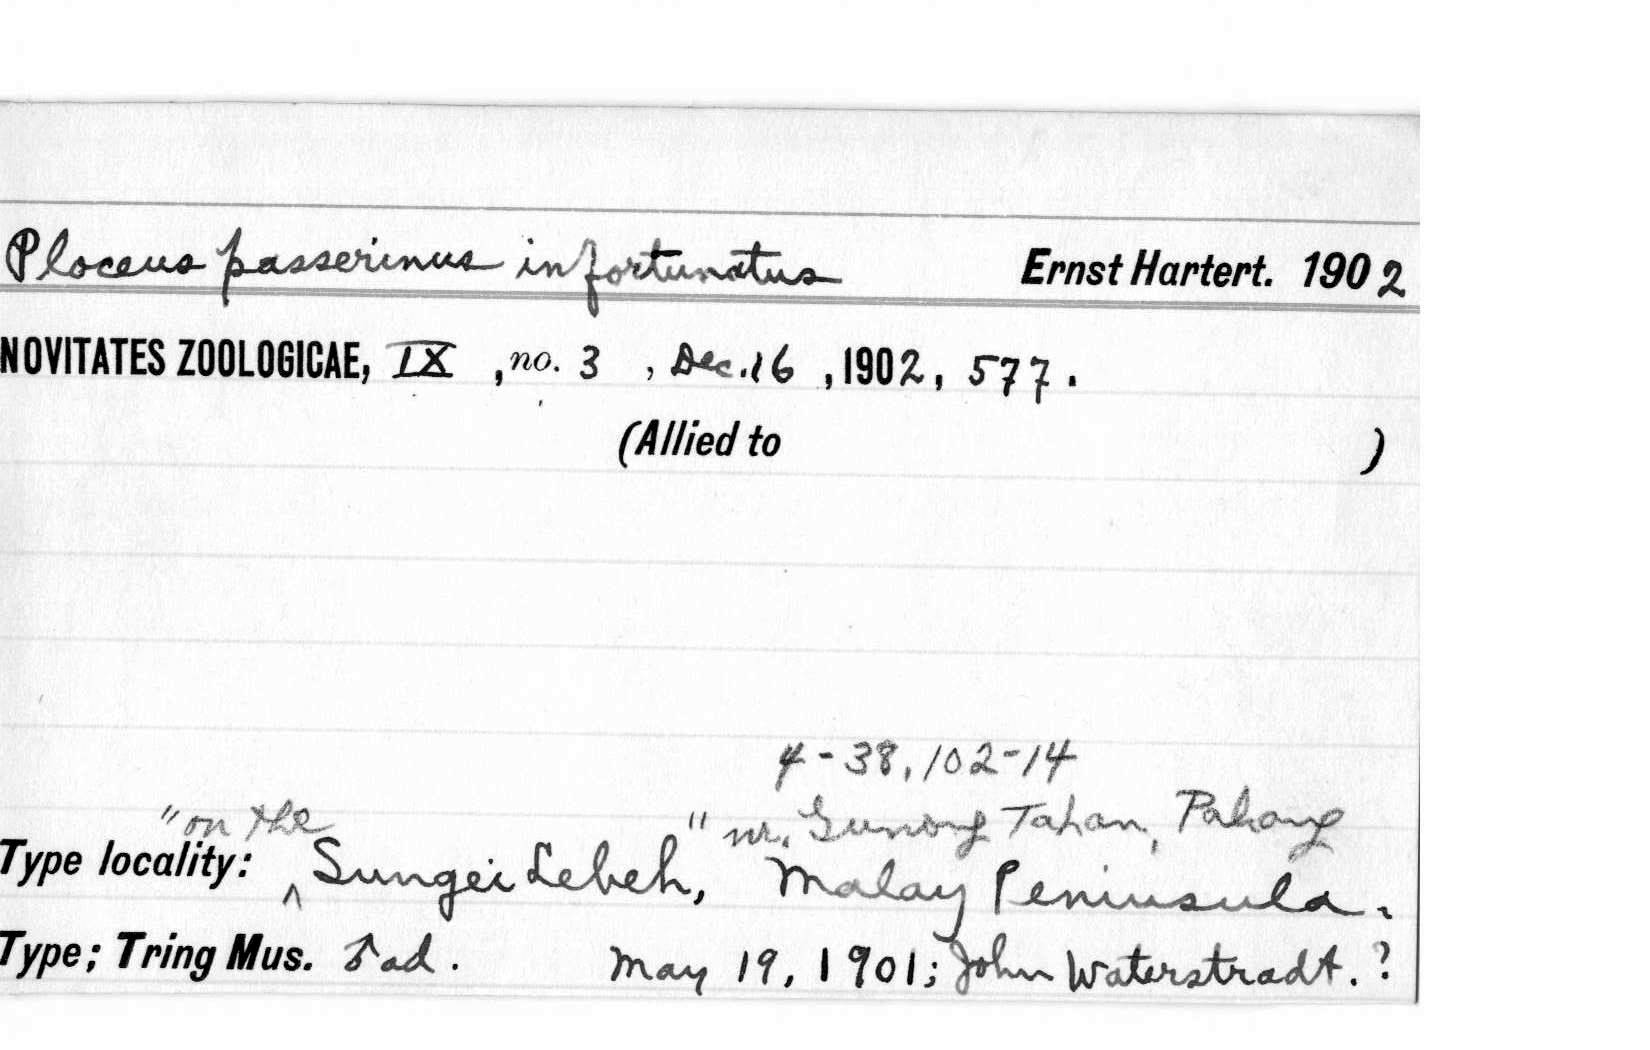 Ploceus passerinus infortunatus Ernst Hartert. 1902
NOVITATES ZOOLOGICAE, IX, no. 3, Dec. 16, 1902, 577.
(Allied to )
4-38, 102-14
"on the " nr. Gunong Tahan, Pahang
Type locality: ^ Sungei Lebeh, Malay Peninsula.
Type; Tring Mus. ♂ ad. May 19, 1901; John Waterstradt. ?